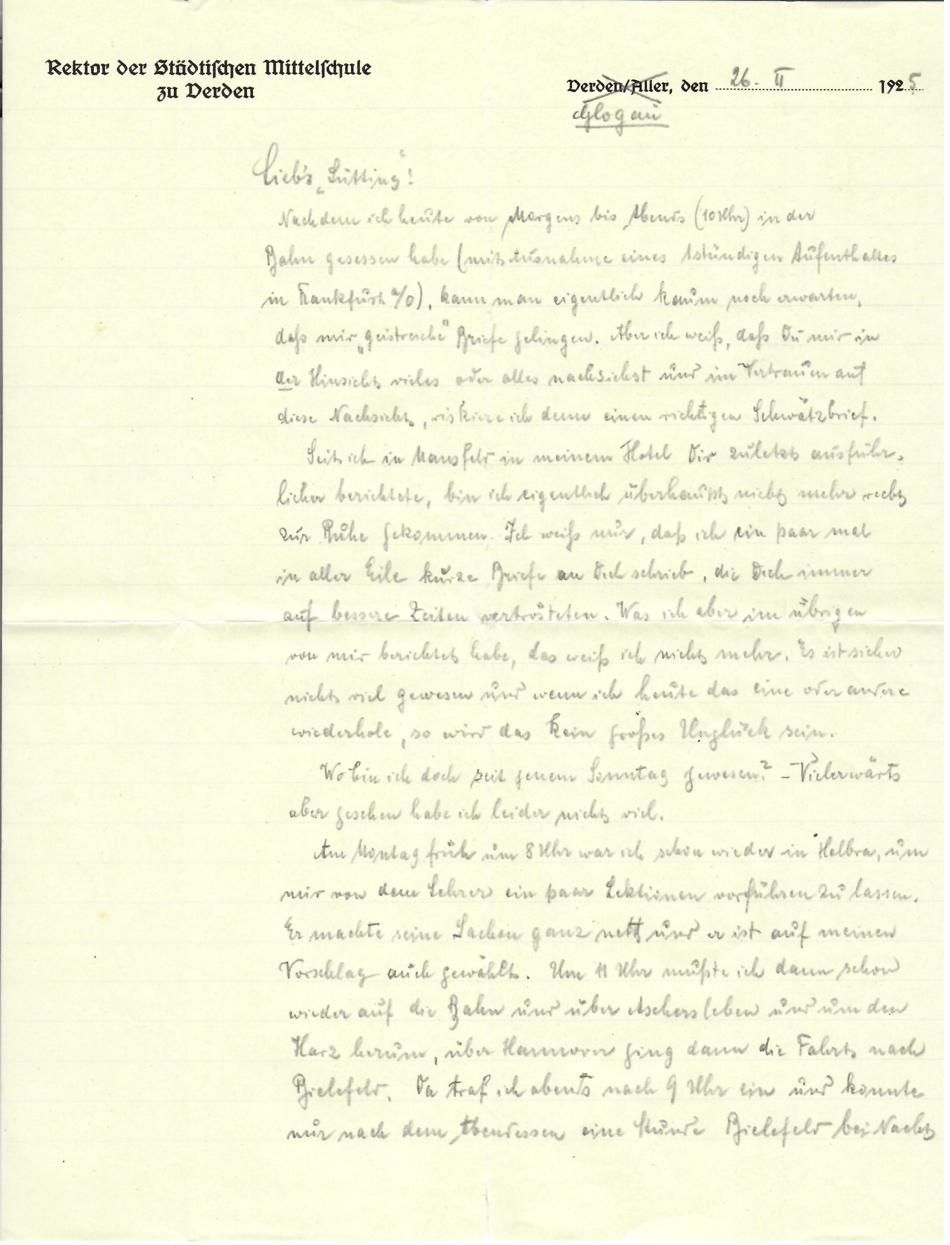 Rektor der Städtischen Mittelschule
zu Verden
Verden/Aller, den 26. II 1925
Glogau
Lieb's „Lütting“!
Nachdem ich heute von Morgens bis Abends (10 Uhr) in der
Bahn gesessen habe (mit Ausnahme eines 1stündigen Aufenthaltes
in Frankfurt a/O), kann man eigentlich kaum noch erwarten,
daß mir „geistreiche“ Briefe gelingen. Aber ich weiß, daß Du mir in
der Hinsicht vieles oder alles nachsiehst und im Vertrauen auf
diese Nachsicht, riskiere ich denn einen richtigen Schwätzbrief.
Seit ich in Mansfeld in meinem Hotel Dir zuletzt ausführ-
licher berichtete, bin ich eigentlich überhaupt nicht mehr recht
zur Ruhe gekommen. Ich weiß nur, daß ich ein paar mal
in aller Eile kurze Briefe an Dich schrieb, die Dich immer
auf bessere Zeiten vertrösteten. Was ich aber im übrigen
von mir berichtet habe, das weiß ich nicht mehr. Es ist sicher
nicht viel gewesen und wenn ich heute das eine oder andere
wiederhole, so wird das kein großes Unglück sein.
Wo bin ich doch seit jenem Sonntag gewesen? – Vielerwärts
aber gesehen habe ich leider nicht viel.
Am Montag früh um 8 Uhr war ich schon wieder in Helbra, um
mir von dem Lehrer ein paar Lektionen vorführen zu lassen.
Er machte seine Sachen ganz nett und er ist auf meinen
Vorschlag auch gewählt. Um 11 Uhr mußte ich dann schon
wieder auf die Bahn und über Aschersleben und um den
Harz herum, über Hannover ging dann die Fahrt nach
Bielefeld. Da traf ich abends nach 9 Uhr ein und konnte
nur nach dem Abendessen eine Stunde Bielefeld bei Nacht